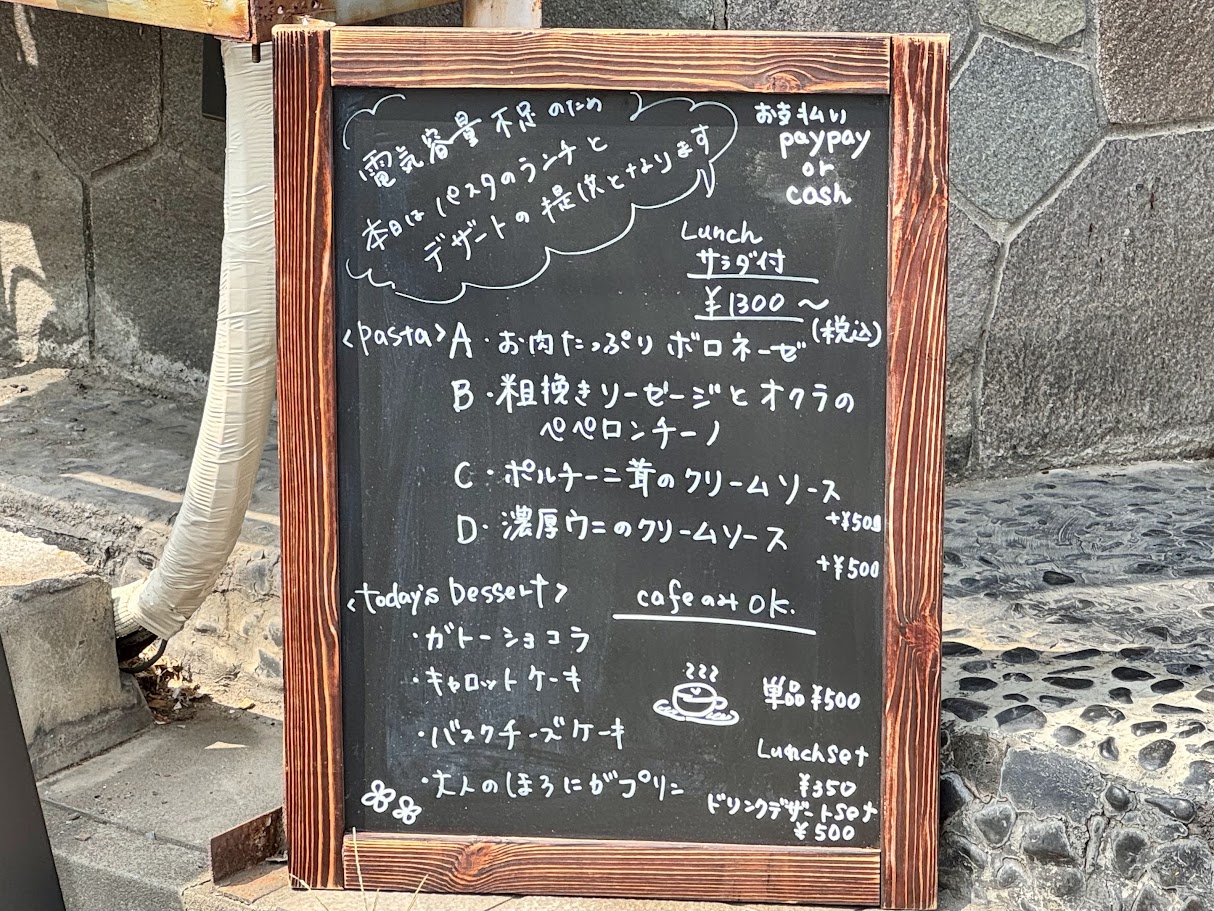 電気容量不足のため
本日はパスタのランチと
デザートの提供となります
お支払い
paypay
or
cash
Lunch
サラダ付
¥1300～
(税込)
<pasta> A・お肉たっぷりボロネーゼ
B・粗挽きソーゼージとオクラの
ペペロンチーノ
C・ポルチーニ茸のクリームソース
+¥500
D・濃厚ウニのクリームソース
+¥500
<today's Dessert>
cafeのみOK.
・ガトーショコラ
・キャロットケーキ
・バスクチーズケーキ
・大人のほろにがプリン
単品¥500
Lunchset
¥350
ドリンクデザートset
¥500